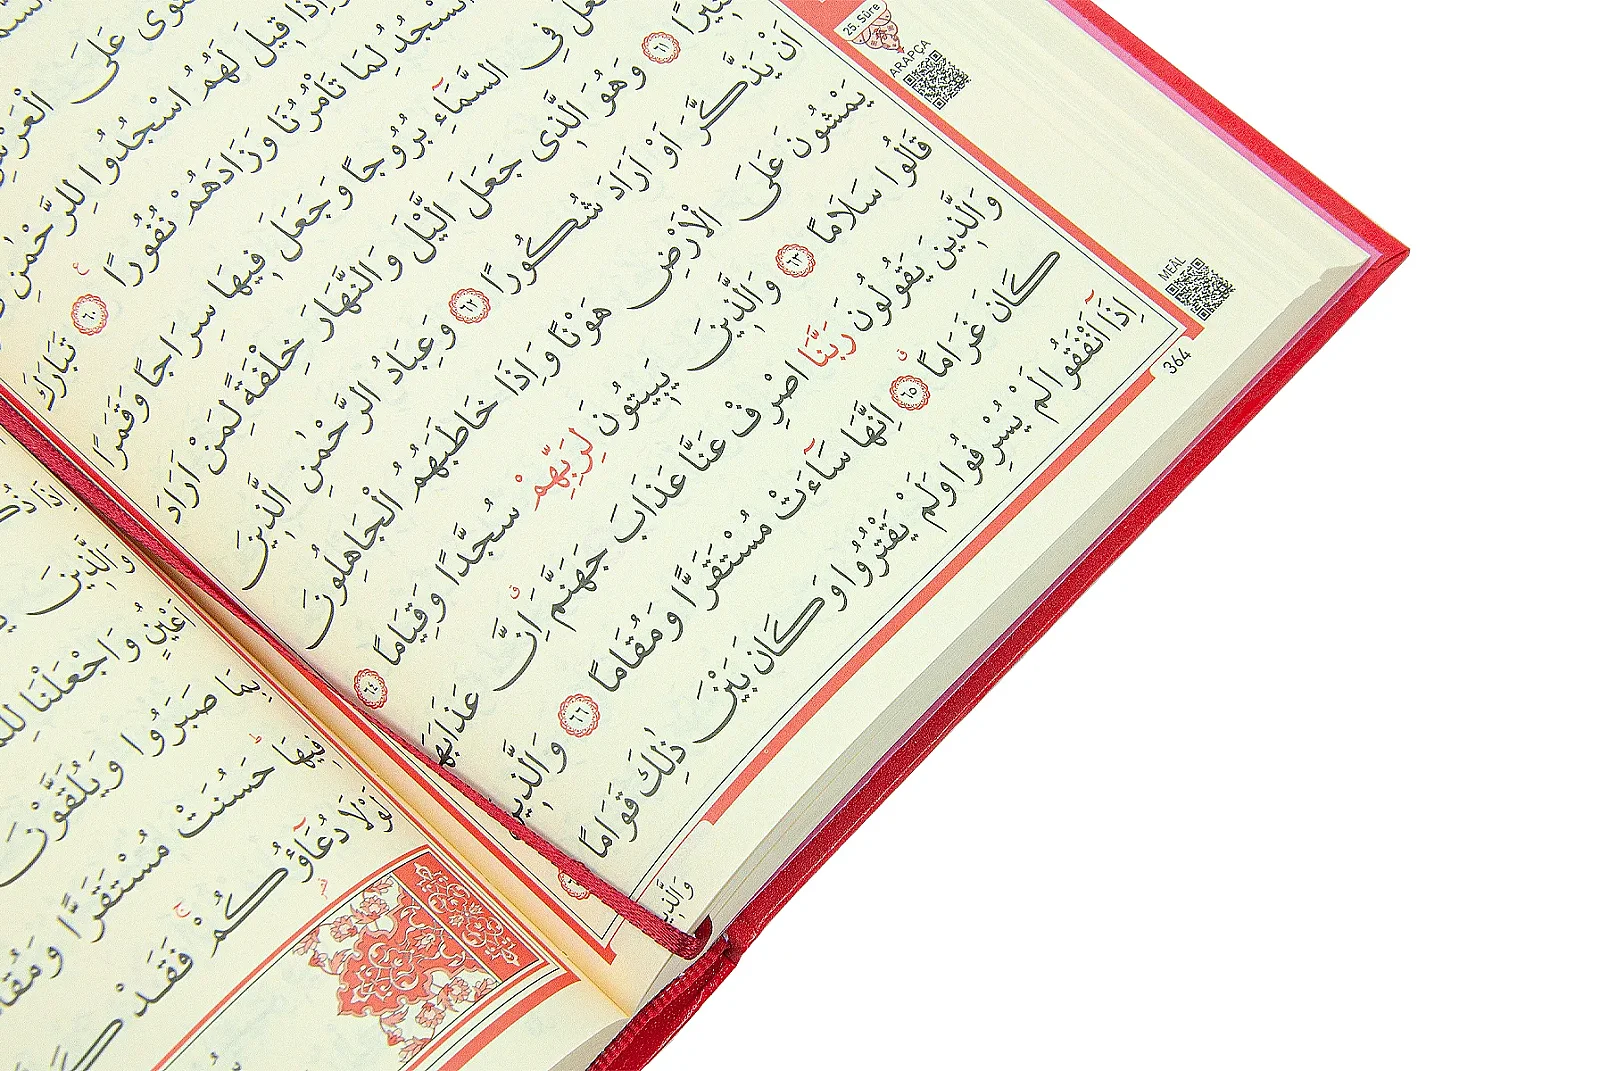 25. Sûre
ARAPÇA
عَلَى الْعَرْشِ
وَاِذَا قِيلَ لَهُمُ اسْجُدُوا لِلرَّحْمٰنِ
اَنَسْجُدُ لِمَا تَأْمُرُنَا وَزَادَهُمْ نُفُورًا ﴿٦٠﴾ تَبَارَكَ
جَعَلَ فِي السَّمَٓاءِ بُرُوجًا وَجَعَلَ فِيهَا سِرَاجًا وَقَمَرًا
مُنِيرًا ﴿٦١﴾ وَهُوَ الَّذِى جَعَلَ الَّيْلَ وَالنَّهَارَ خِلْفَةً لِمَنْ اَرَادَ
اَنْ يَذَّكَّرَ اَوْ اَرَادَ شُكُورًا ﴿٦٢﴾ وَعِبَادُ الرَّحْمٰنِ الَّذِينَ
يَمْشُونَ عَلَى الْاَرْضِ هَوْنًا وَاِذَا خَاطَبَهُمُ الْجَاهِلُونَ
قَالُوا سَلَامًا ﴿٦٣﴾ وَالَّذِينَ يَبِيتُونَ لِرَبِّهِمْ سُجَّدًا وَقِيَامًا ﴿٦٤﴾
وَالَّذِينَ يَقُولُونَ رَبَّنَا اصْرِفْ عَنَّا عَذَابَ جَهَنَّمَ اِنَّ عَذَابَهَا
كَانَ غَرَامًا ﴿٦٥﴾ اِنَّهَا سَٓاءَتْ مُسْتَقَرًّا وَمُقَامًا ﴿٦٦﴾ وَالَّذِينَ
اِذَٓا اَنْفَقُوا لَمْ يُسْرِفُوا وَلَمْ يَقْتُرُوا وَكَانَ بَيْنَ ذٰلِكَ قَوَامًا
MEAL
364
وَالَّذِينَ
اِذَا
وَالَّذِينَ
اَعْيُنٍ وَاجْعَلْنَا
بِمَا صَبَرُوا وَيُلَقَّوْنَ
فِيهَا حَسُنَتْ مُسْتَقَرًّا وَمُقَامًا
لَوْلَا دُعَٓاؤُكُمْ فَقَدْ